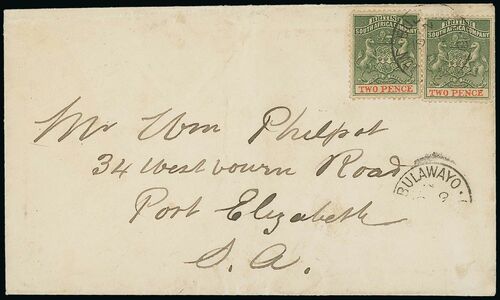 BRITISH
SOUTH AFRICA COMPANY
TWO PENCE
BRITISH
SOUTH AFRICA COMPANY
TWO PENCE
Mr Wm Philpot
34 Westbourn Road
Port Elizabeth
S. A.
BULAWAYO